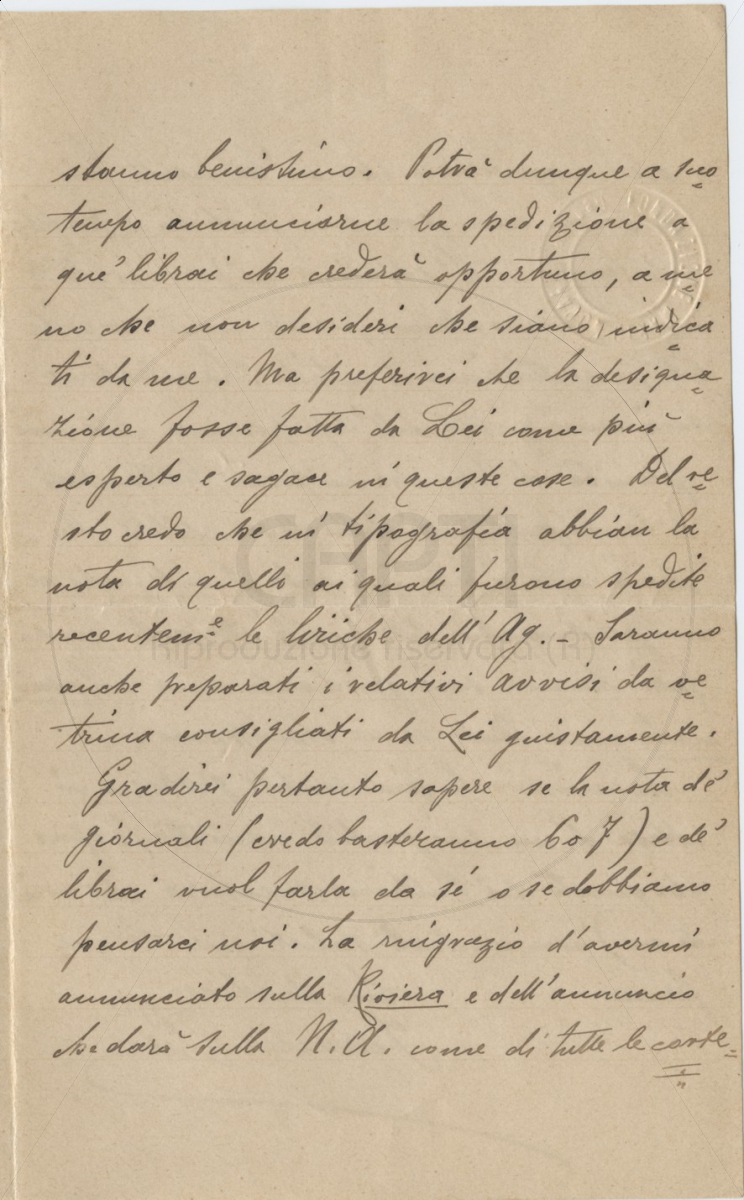 stanno benissimo. Potrà dunque a suo
tempo annunciarne la spedizione a
que' librai che crederà opportuno, a me=
no che non desideri che siano indica=
ti da me. Ma preferirei che la designa=
zione fosse fatta da Lei come più
esperto e sagace in queste cose. Del re=
sto credo che in tipografia abbian la
nota di quelli ai quali furono spedite
recentem.e le liriche dell' Ag. - Saranno
anche preparati i relativi avvisi da ve=
trina consigliati da Lei giustamente.
Gradirei pertanto sapere se la nota de'
giornali (credo basteranno 6 o 7) e de'
librai vuol farla da sé o se dobbiamo
pensarci noi. La ringrazio d'avermi
annunciato sulla Riviera e dell'annuncio
che darà sulla N. A. come di tutte le corte=